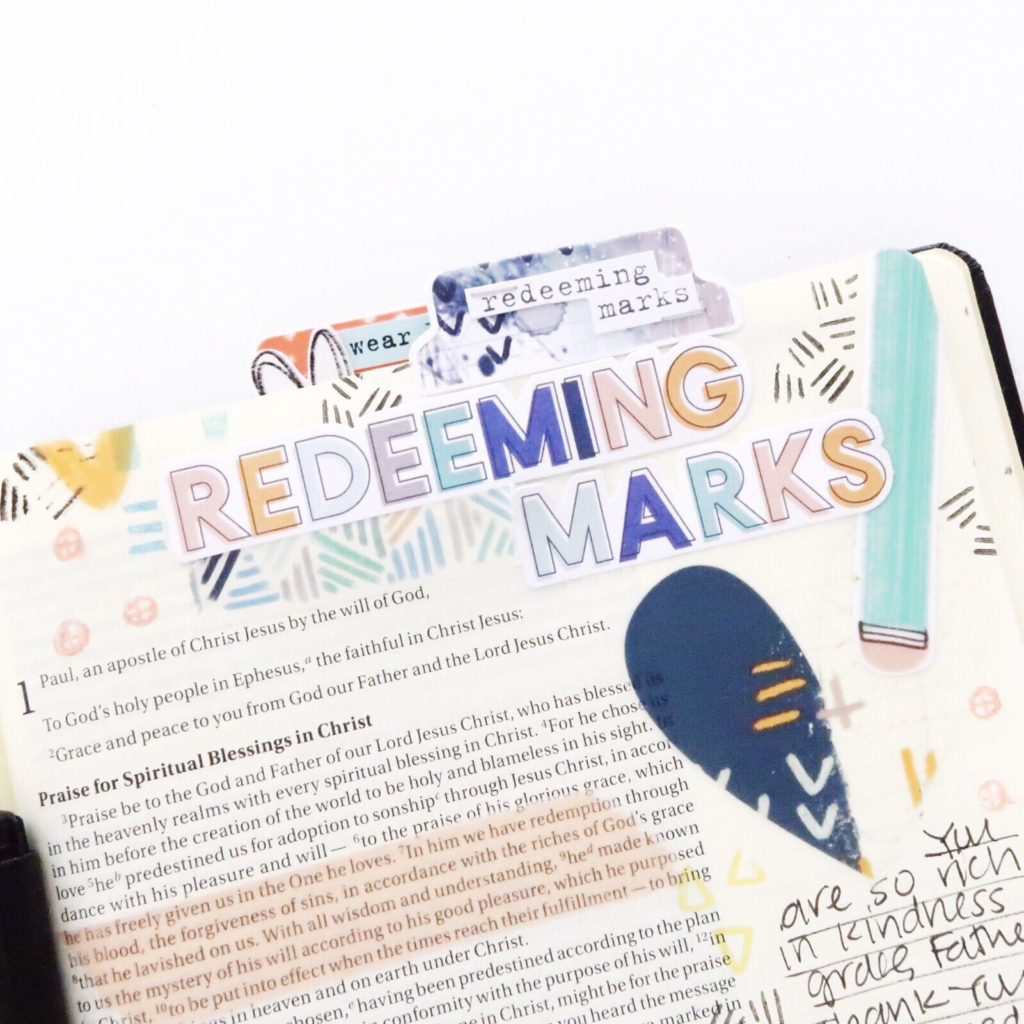 wear
redeeming
marks
REDEEMING
MARKS
1
Paul, an apostle of Christ Jesus by the will of God,
To God's holy people in Ephesus,ᵃ the faithful in Christ Jesus:
²Grace and peace to you from God our Father and the Lord Jesus Christ.
Praise for Spiritual Blessings in Christ
³Praise be to the God and Father of our Lord Jesus Christ, who has blessed us
in the heavenly realms with every spiritual blessing in Christ. ⁴For he chose us
in him before the creation of the world to be holy and blameless in his sight. In
love ⁵heᵇ predestined us for adoption to sonshipᶜ through Jesus Christ, in accor
dance with his pleasure and will— ⁶to the praise of his glorious grace, which
he has freely given us in the One he loves. ⁷In him we have redemption through
his blood, the forgiveness of sins, in accordance with the riches of God's grace
⁸that he lavished on us. With all wisdom and understanding, ⁹heᵈ made known
to us the mystery of his will according to his good pleasure, which he purposed
Christ, ¹⁰to be put into effect when the times reach their fulfillment—to bring
in heaven and on earth under Christ.
chosen,ᵉ having been predestined according to the plan
conformity with the purpose of his will, ¹²in
in Christ, might be for the praise
you heard the message
marked in
You
are so rich
in kindness
grace, Father
Thank You